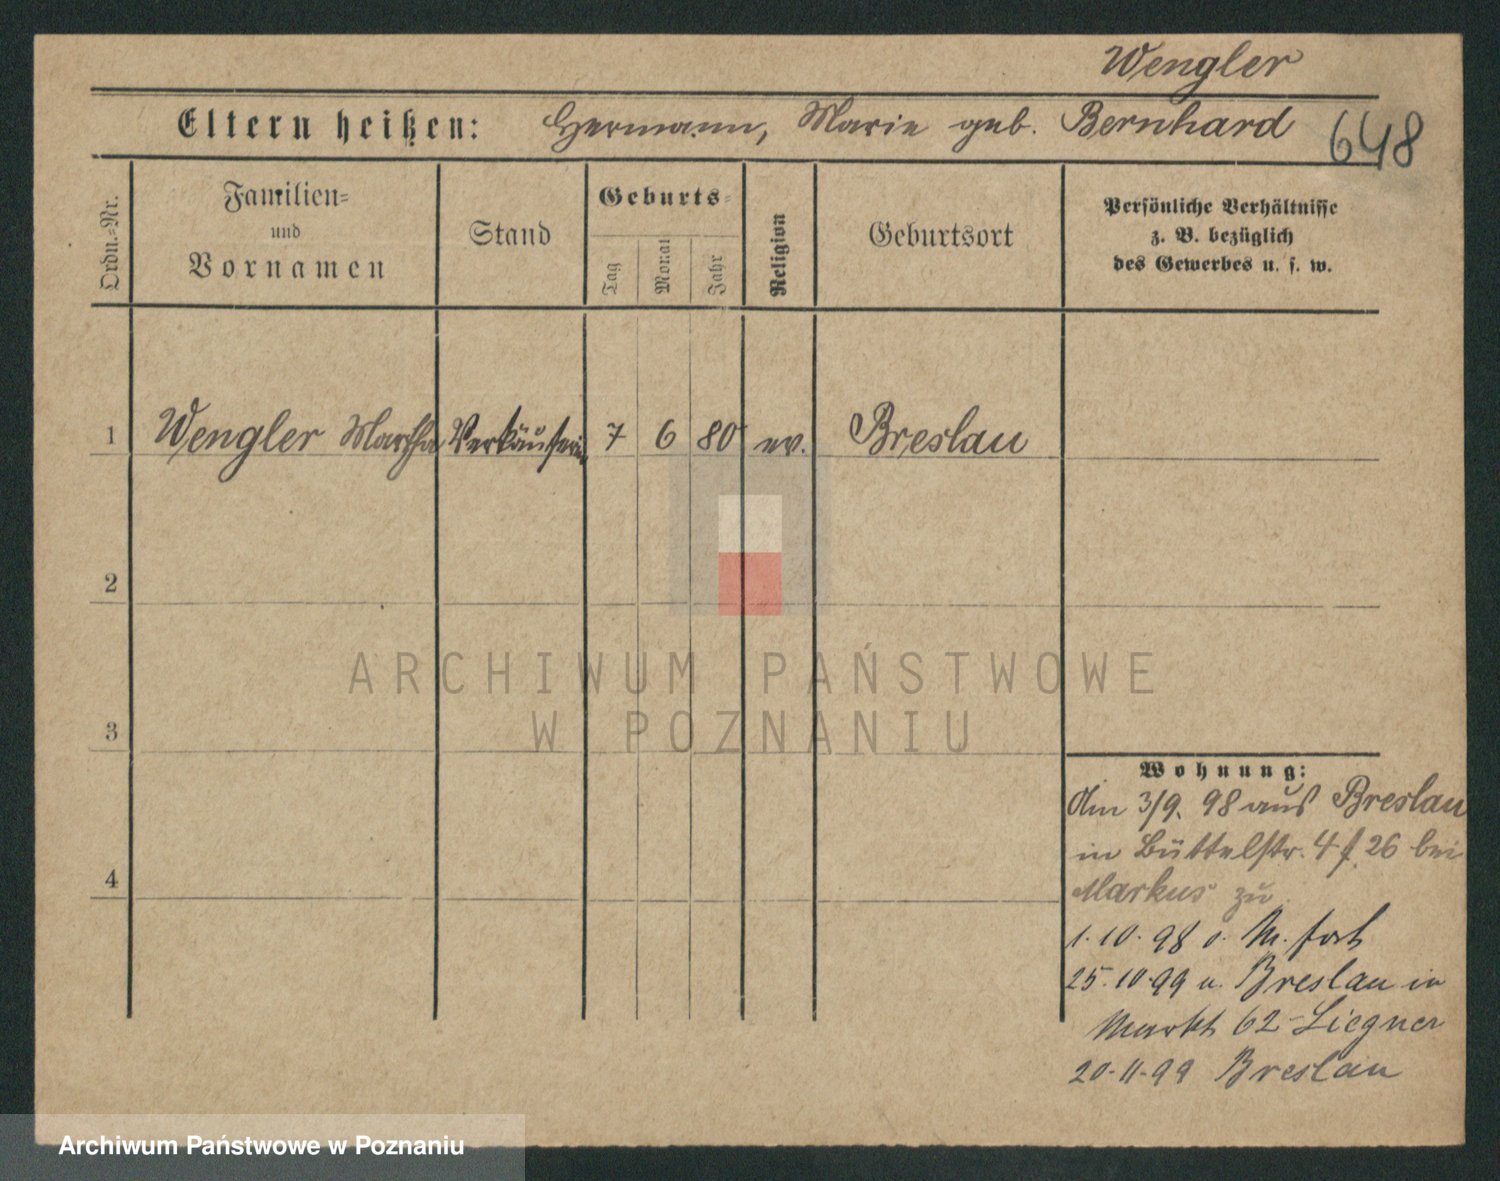 Wengler
Eltern heißen: Hermann, Marie geb. Bernhard 648
Ordn.=Nr.
Familien=
und
Vornamen
Stand
Geburts=
Tag
Monat
Jahr
Religion
Geburtsort
Persönliche Verhältnisse
z. B. bezüglich
des Gewerbes u. s. w.
1 Wengler Martha Verkäuferin 7 6 80 ev. Breslau
2
3
4
ARCHIWUM PAŃSTWOWE
W POZNANIU
Wohnung:
Am 3/9. 98 aus Breslau
in Büttelstr. 4 f. 26 bei
Markus zu
1.10.98 o. M. fort
25.10.99 v. Breslau in
Markt 62 Liegner
20-11-99 Breslau
Archiwum Państwowe w Poznaniu